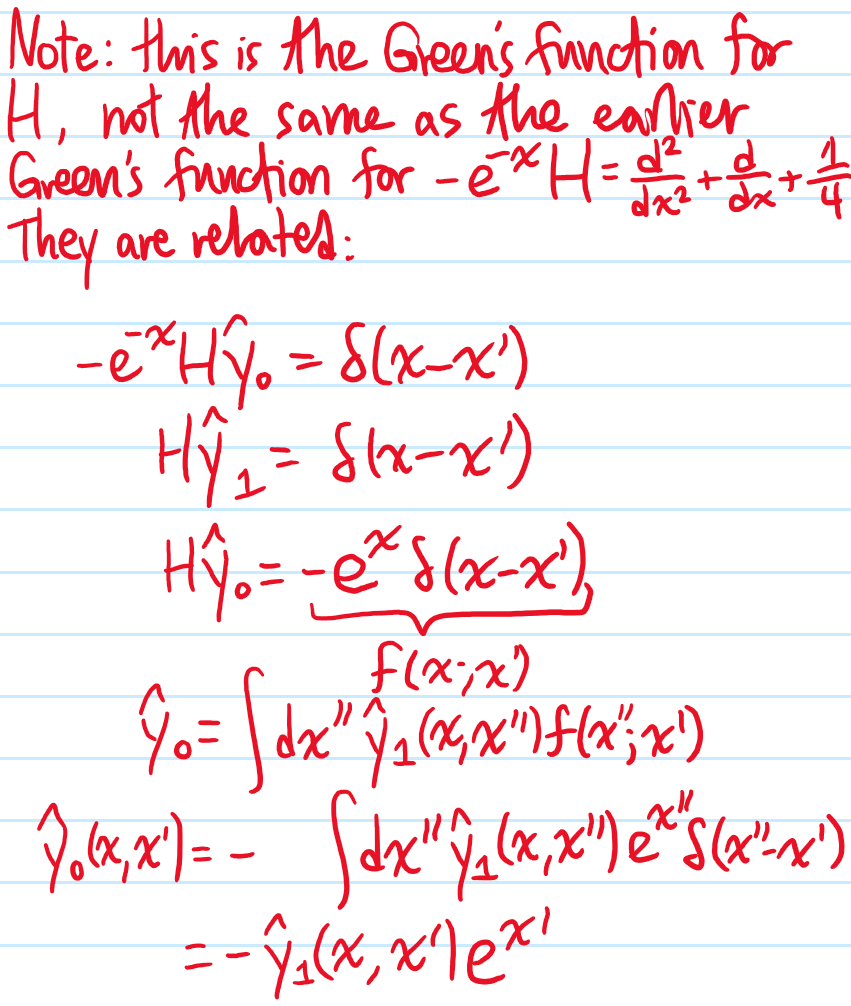 Note: this is the Green's function for
H, not the same as the earlier
Green's function for -e^{-x} H = d²/dx² + d/dx + 1/4
They are related:
-e^{-x} H ŷ₀ = δ(x-x')
H ŷ₁ = δ(x-x')
H ŷ₀ = -e^x δ(x-x')
f(x;x')
ŷ₀ = ∫ dx'' ŷ₁(x,x'') f(x'';x')
ŷ₀(x,x') = - ∫ dx'' ŷ₁(x,x'') e^{x''} δ(x''-x')
= - ŷ₁(x,x') e^{x'}